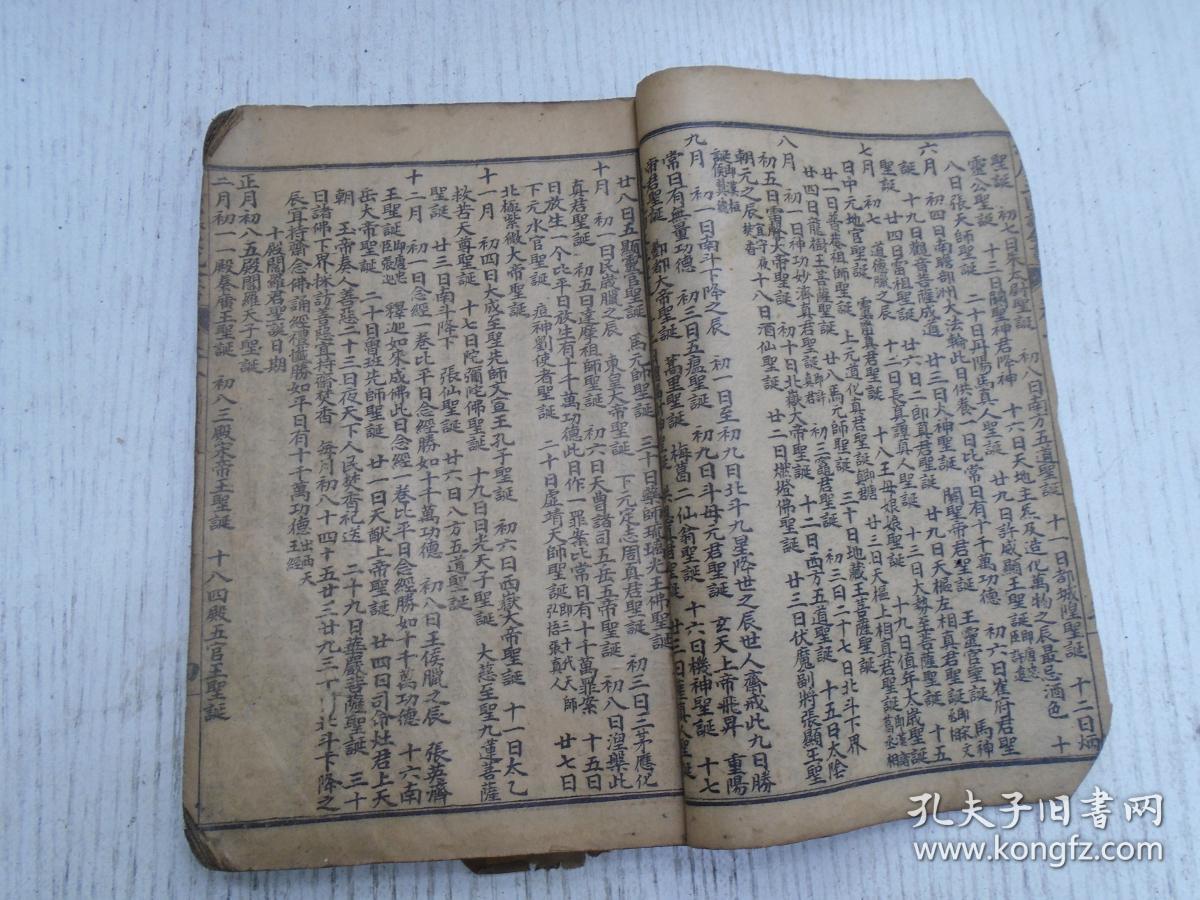 聖誕 初七日朱太尉聖誕 初八日南方五道聖誕 十一日都城隍聖誕 十二日炳
靈公聖誕 十三日關聖神君降神 十六日天地主炁及造化萬物之辰最忌酒色 十
八日張天師聖誕 二十日丹陽馬真人聖誕 廿九日許威顯王聖誕
六月 初四日南瞻部洲大法輪此日供養一日比常日有千千萬功德 初六日崔府君聖
誕 十九日觀音菩薩成道 廿三日火神聖誕 關聖帝君聖誕 王靈官聖誕 馬神
聖誕 廿四日雷祖聖誕 廿六日二郎真君聖誕 廿九日天樞左相真君聖誕
七月 初七 道德臘之辰 十二日長真譚真人聖誕 十三日大勢至菩薩聖誕 十五
日中元地官聖誕 靈濟真君聖誕 十八王母娘娘聖誕 十九日值年太歲聖誕
廿一日普菴祖師聖誕 上元道化真君聖誕 廿三日天樞上相真君聖誕
廿四日龍樹王菩薩聖誕 廿八馬元帥聖誕 三十日地藏王菩薩聖誕
八月 初一日神功妙濟真君聖誕 初三竈君聖誕 初三日二十七日北斗下界
初五日雷聲大帝聖誕 初十日北嶽大帝聖誕 十二日西方五道聖誕 十五日太陰
朝元之辰 十八日酒仙聖誕 廿二日燃燈佛聖誕 廿三日伏魔副將張顯王聖
誕
九月 初一日南斗下降之辰 初一日至初九日北斗九星降世之辰世人齋戒此九日勝
常日有無量功德 初三日五瘟聖誕 初九日斗母元君聖誕 玄天上帝飛昇 重陽
帝君聖誕 酆都大帝聖誕 蒿里聖誕 梅葛二仙翁聖誕 十六日機神聖誕 十七
廿八日五顯靈官聖誕 馬元帥聖誕 三十日藥師琉璃光王佛聖誕
十月 初一日民歲臘之辰 東皇大帝聖誕 下元定志周真君聖誕 初三日三茅應化
真君聖誕 初五日達摩祖師聖誕 初六日天曹諸司五岳五帝聖誕 初八日涅槃此
日放生一个比平日放生有十千萬功德此日作一罪業比常日有十千萬罪業 十五日
下元水官聖誕 痘神劉使者聖誕 二十日虛靖天師聖誕即三十代天師弘悟張真人 廿七日
北極紫微大帝聖誕
十一月 初四日大成至聖先師文宣王孔子聖誕 初六日西嶽大帝聖誕 十一日太乙
救苦天尊聖誕 十七日陀彌陀佛聖誕 十九日日光天子聖誕 大慈至聖九蓮菩薩
聖誕 廿三日南斗降下 張仙聖誕 廿六日八方五道聖誕
十二月 初一日念經一卷比平日念經勝如十千萬功德 初八日王侯臘之辰 張英濟
王聖誕 釋迦如來成佛此日念經一卷比平日念經勝如千千萬功德 十六南
岳大帝聖誕 二十日魯班先師聖誕 廿一日天猷上帝聖誕 廿四日司命灶君上天
朝玉帝奏人善惡二十三日夜天下人民焚香礼送 二十九日華嚴菩薩聖誕 三十
日諸佛下界採訪善惡宜持齋焚香 每月初八十四十五廿三廿九三十 斗下降之
辰宜持齋念佛誦經禮懺勝如平日有十千萬功德
十殿閻羅君聖誕日期
正月初八五殿閻羅天子聖誕
二月初一一殿秦廣王聖誕 初八三殿宋帝王聖誕 十八四殿五官王聖誕
孔夫子旧书网
www.kongfz.com